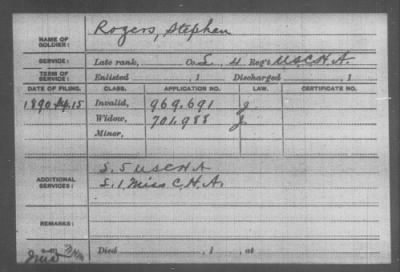 NAME OF SOLDIER: Rogers, Stephen
SERVICE: Late rank, Co. S, 4 Reg't U.S.C.H.A.
TERM OF SERVICE: Enlisted , 1 Discharged , 1
DATE OF FILING. CLASS. APPLICATION NO. LAW. CERTIFICATE NO.
1890 15 Invalid, 969.691 J
Widow, 701.988 J
Minor,
ADDITIONAL SERVICES: S. 5 U S C H A
S. 1, Miss C. H. A.
REMARKS:
Died , 1 , at